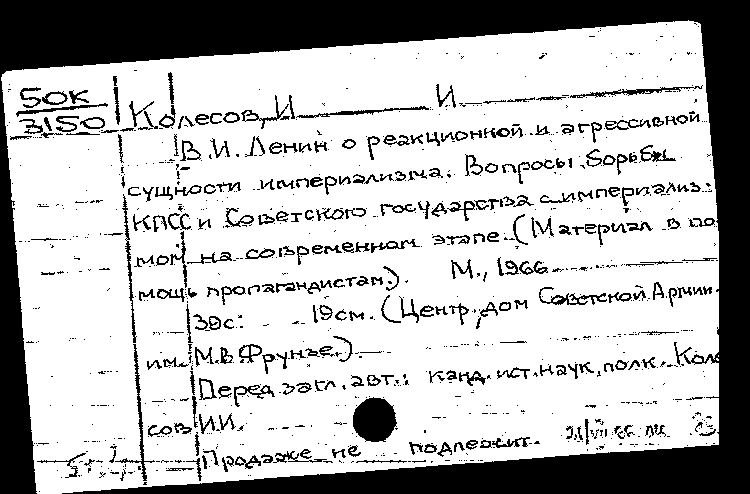 50К
3150
Колесов, И И.
В.И. Ленин о реакционной и агрессивной
сущности империализма. Вопросы борьбы
КПСС и Советского государства с империализ-
мом на современном этапе. (Материал в по-
мощь пропагандистам). М., 1966.
39с. 19см. (Центр. дом Советской Армии
им. М.В. Фрунзе.)
Перед загл. авт.: канд. ист. наук, полк. Коле
сов И.И.
Продаже не подлежит.